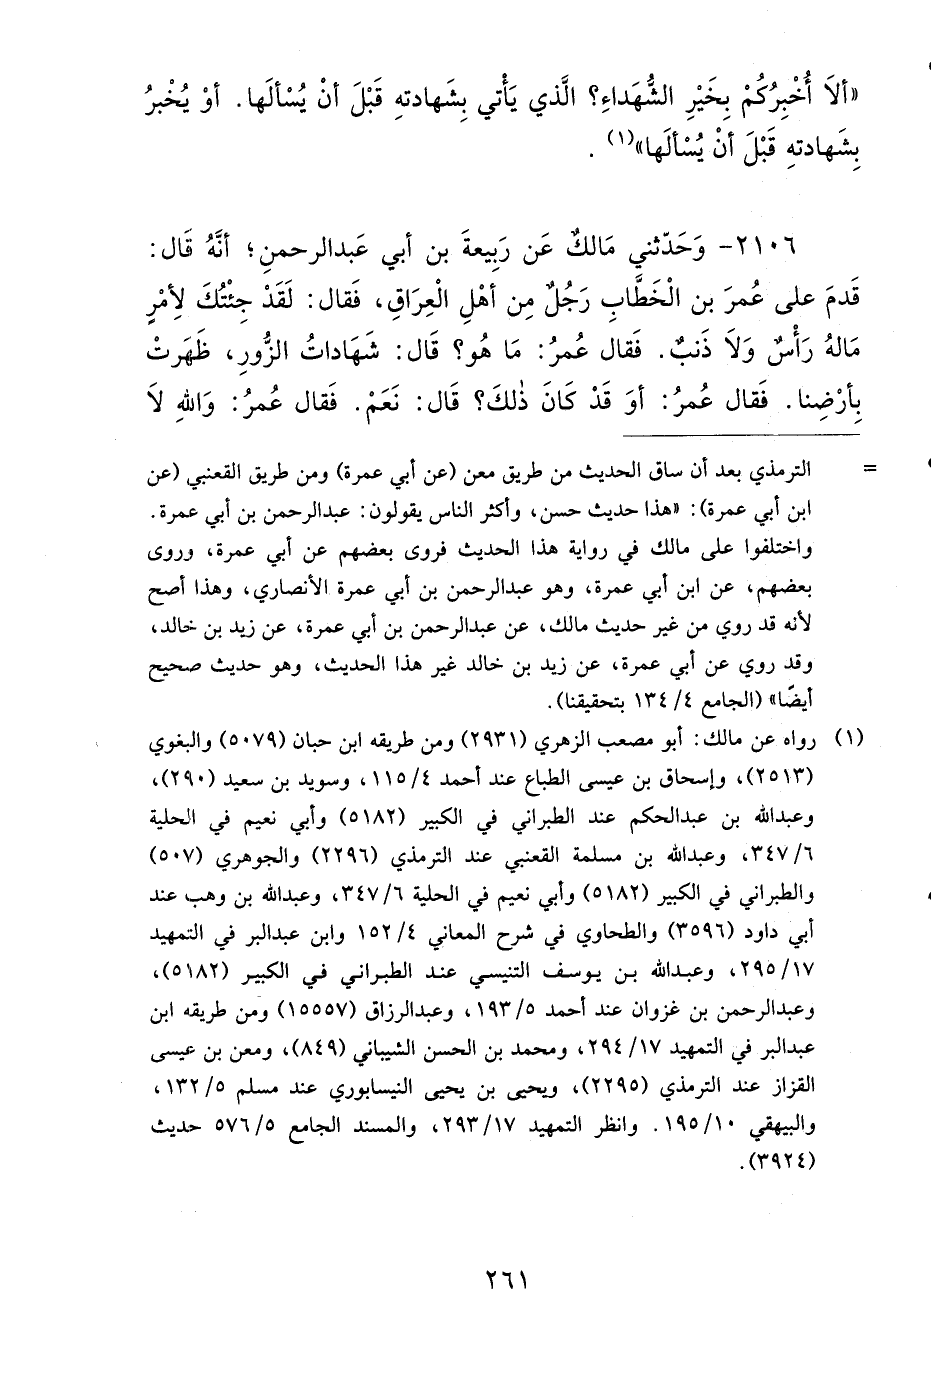 «ألاَ أُخْبِرُكُمْ بِخَيْرِ الشُّهَداءِ؟ الَّذي يَأْتي بِشَهادتهِ قَبْلَ أنْ يُسْألَها. أوْ يُخْبرُ
بِشَهادتهِ قَبْلَ أنْ يُسْألَها»(١) .
٢١٠٦- وَحَدّثني مَالكٌ عَن رَبِيعةَ بن أبي عَبدالرحمنِ؛ أنَّهُ قَال:
قَدمَ على عُمرَ بن الْخَطَّابِ رَجُلٌ مِن أهْلِ الْعِراقِ، فَقال: لَقَدْ جِئْتُكَ لِأمْرٍ
مَالهُ رَأْسٌ وَلاَ ذَنبٌ. فَقال عُمرُ: مَا هُو؟ قَال: شَهَاداتُ الزُّورِ، ظَهَرتْ
بِأرْضِنا. فَقال عُمرُ: أوَ قَدْ كَانَ ذٰلكَ؟ قَال: نَعَمْ. فَقال عُمرُ: وَاللهِ لاَ
= الترمذي بعد أن ساق الحديث من طريق معن (عن أبي عمرة) ومن طريق القعنبي (عن
ابن أبي عمرة): «هذا حديث حسن، وأكثر الناس يقولون: عبدالرحمن بن أبي عمرة.
واختلفوا على مالك في رواية هذا الحديث فروى بعضهم عن أبي عمرة، وروى
بعضهم، عن ابن أبي عمرة، وهو عبدالرحمن بن أبي عمرة الأنصاري، وهذا أصح
لأنه قد روي من غير حديث مالك، عن عبدالرحمن بن أبي عمرة، عن زيد بن خالد،
وقد روي عن أبي عمرة، عن زيد بن خالد غير هذا الحديث، وهو حديث صحيح
أيضًا» (الجامع ٤/ ١٣٤ بتحقيقنا).
(١) رواه عن مالك: أبو مصعب الزهري (٢٩٣١) ومن طريقه ابن حبان (٥٠٧٩) والبغوي
(٢٥١٣)، وإسحاق بن عيسى الطباع عند أحمد ٤/ ١١٥، وسويد بن سعيد (٢٩٠)،
وعبدالله بن عبدالحكم عند الطبراني في الكبير (٥١٨٢) وأبي نعيم في الحلية
٦/ ٣٤٧، وعبدالله بن مسلمة القعنبي عند الترمذي (٢٢٩٦) والجوهري (٥٠٧)
والطبراني في الكبير (٥١٨٢) وأبي نعيم في الحلية ٦/ ٣٤٧، وعبدالله بن وهب عند
أبي داود (٣٥٩٦) والطحاوي في شرح المعاني ٤/ ١٥٢ وابن عبدالبر في التمهيد
١٧/ ٢٩٥، وعبدالله بن يوسف التنيسي عند الطبراني في الكبير (٥١٨٢)،
وعبدالرحمن بن غزوان عند أحمد ٥/ ١٩٣، وعبدالرزاق (١٥٥٥٧) ومن طريقه ابن
عبدالبر في التمهيد ١٧/ ٢٩٤، ومحمد بن الحسن الشيباني (٨٤٩)، ومعن بن عيسى
القزاز عند الترمذي (٢٢٩٥)، ويحيى بن يحيى النيسابوري عند مسلم ٥/ ١٣٢،
والبيهقي ١٠/ ١٩٥. وانظر التمهيد ١٧/ ٢٩٣، والمسند الجامع ٥/ ٥٧٦ حديث
(٣٩٢٤).
٢٦١